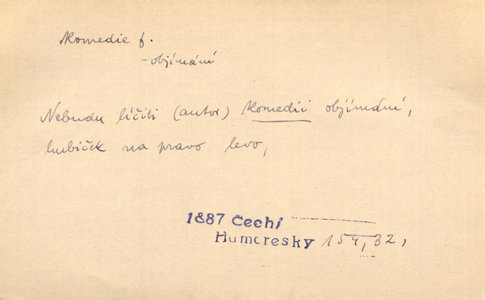 Komedie f.
-objímání
Nebudu líčiti (autor) komedii objímání,
hubiček na pravo levo,
1887 Čech
Humoresky 154, 32,